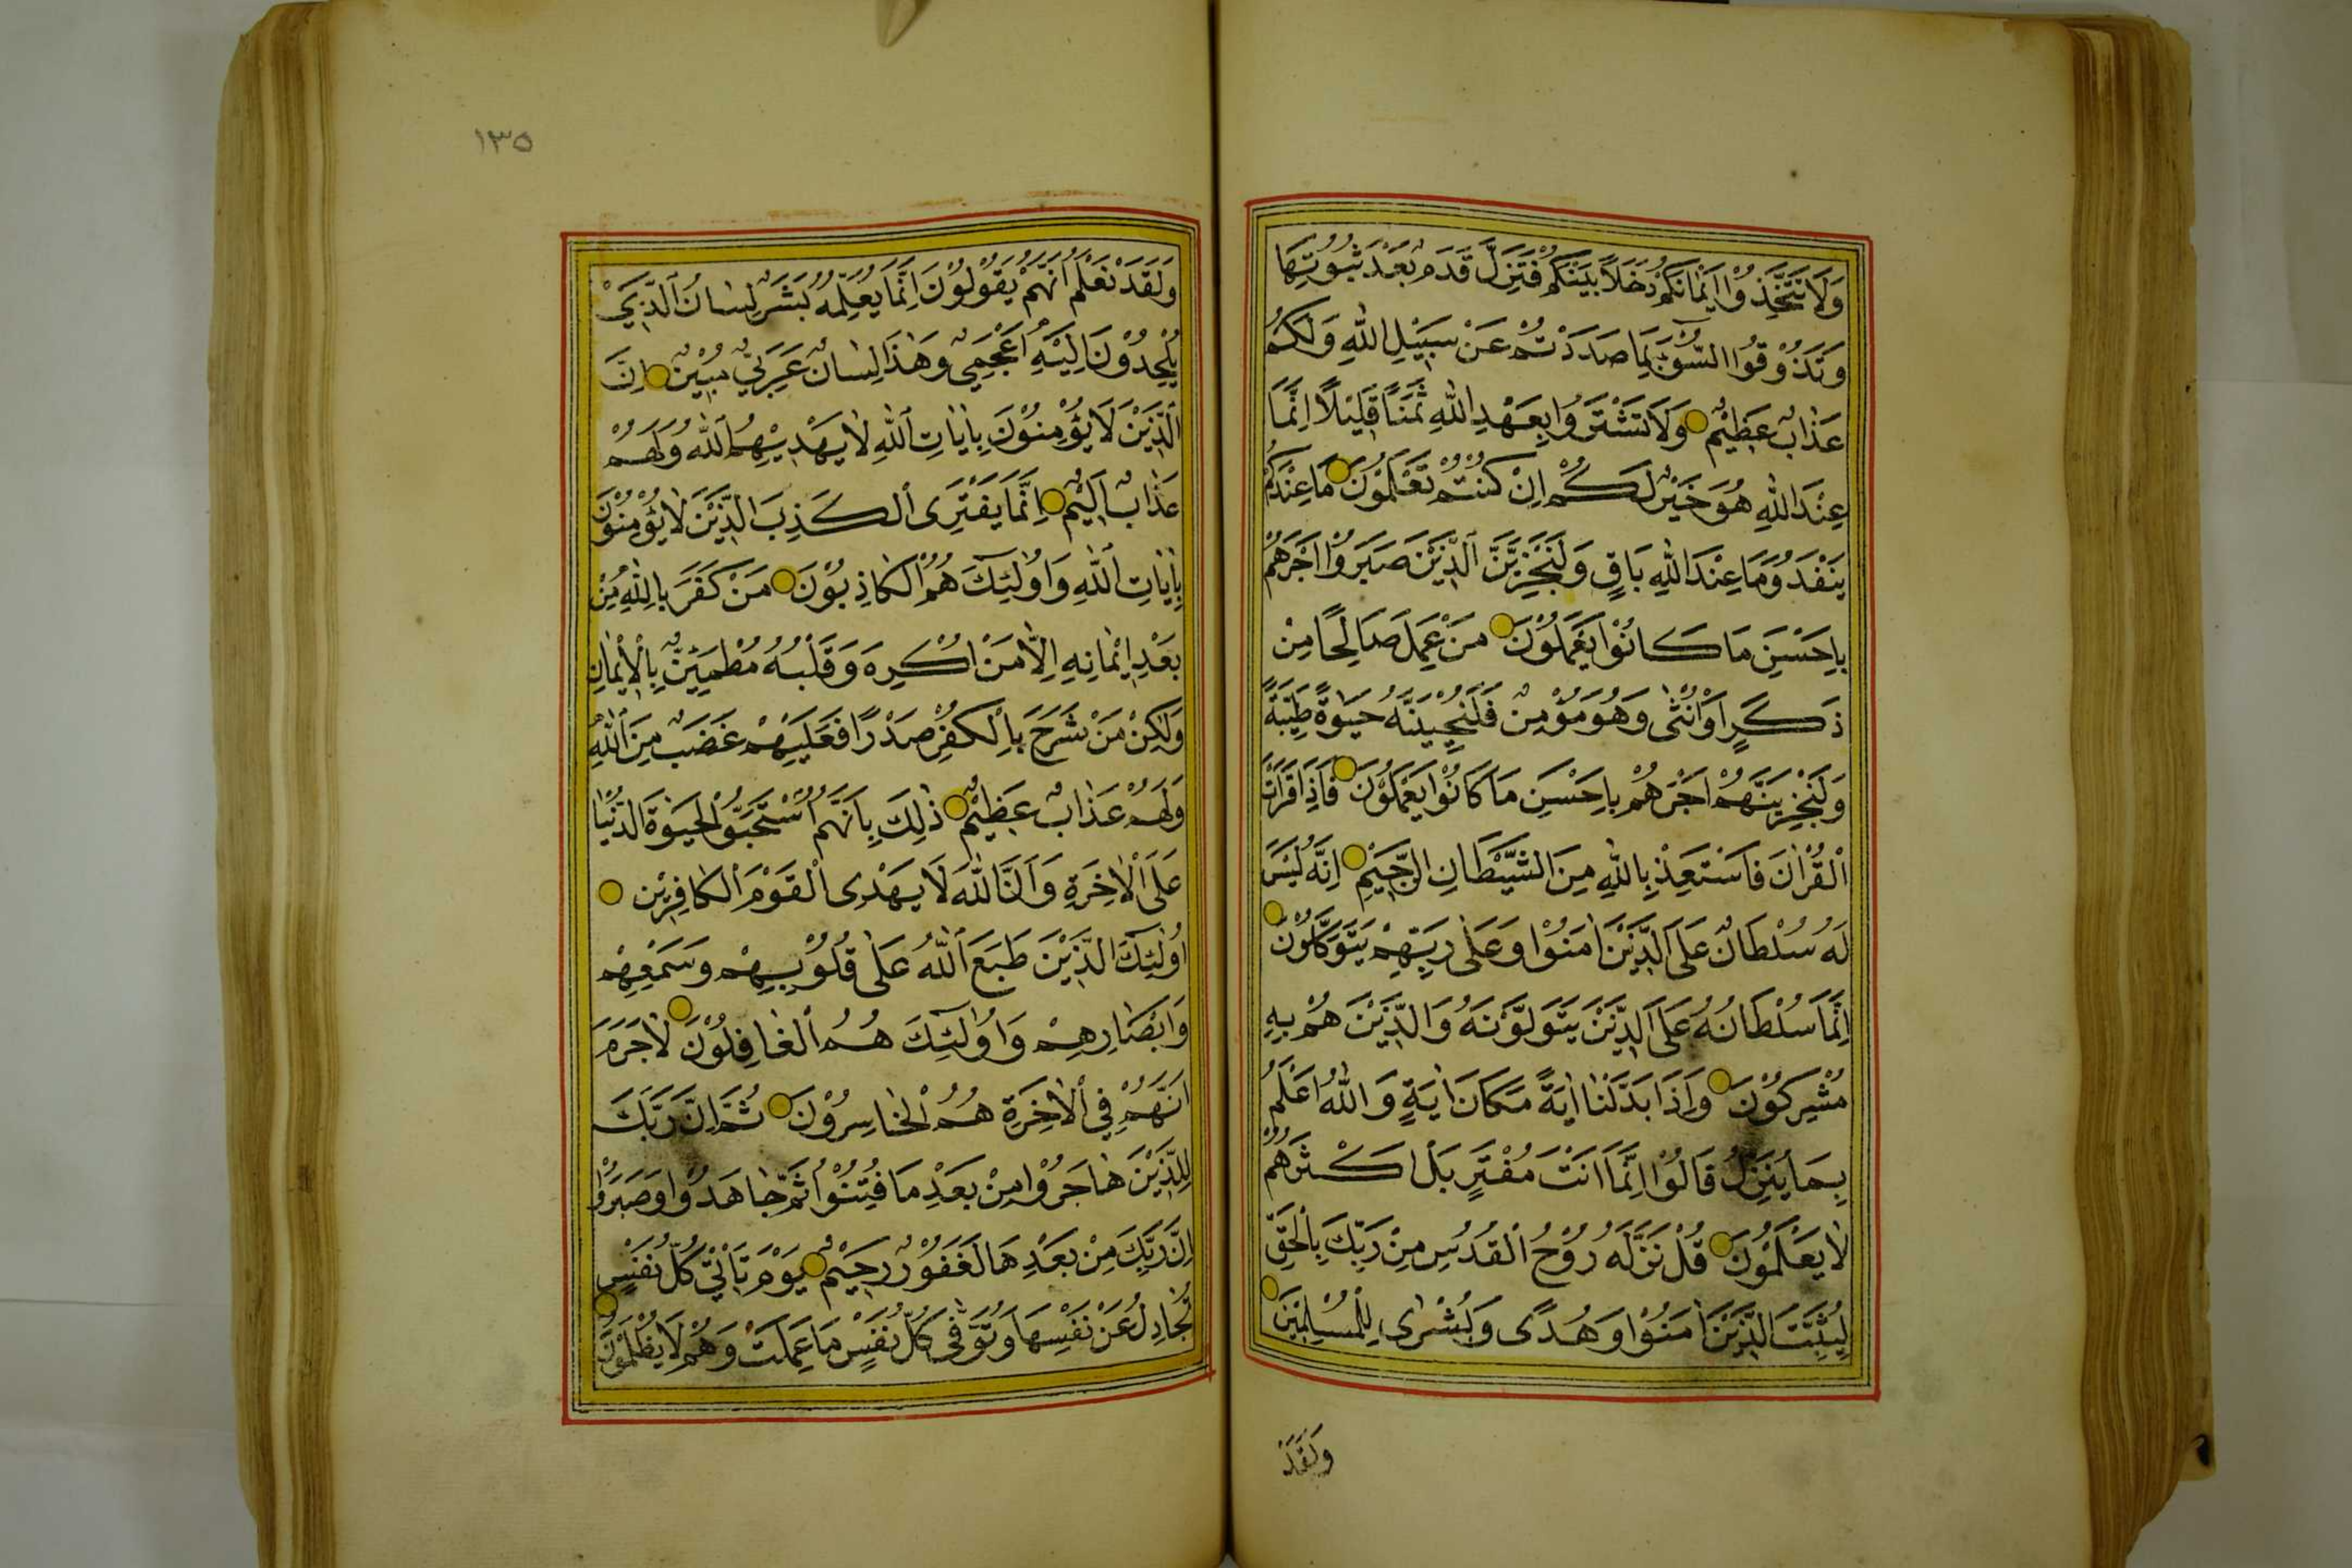 وَلَا تَتَّخِذُوا اَيْمَانَكُمْ دَخَلاً بَيْنَكُمْ فَتَزِلَّ قَدَمٌ بَعْدَ ثُبُوتِهَا
وَتَذُوْقُوا السُّوءَ بِمَا صَدَدْتُمْ عَنْ سَبِيْلِ اللّٰهِ وَلَكُمْ
عَذَابٌ عَظِيْمٌ وَلَا تَشْتَرُوا بِعَهْدِ اللّٰهِ ثَمَنًا قَلِيْلًا اِنَّمَا
عِنْدَ اللّٰهِ هُوَ خَيْرٌ لَكُمْ اِنْ كُنْتُمْ تَعْلَمُوْنَ مَا عِنْدَكُمْ
يَنْفَدُ وَمَا عِنْدَ اللّٰهِ بَاقٍ وَلَنَجْزِيَنَّ الَّذِيْنَ صَبَرُوْا اَجْرَهُمْ
بِاَحْسَنِ مَا كَانُوْا يَعْمَلُوْنَ مَنْ عَمِلَ صَالِحًا مِنْ
ذَكَرٍ اَوْ اُنْثٰى وَهُوَ مُؤْمِنٌ فَلَنُحْيِيَنَّهُ حَيٰوةً طَيِّبَةً
وَلَنَجْزِيَنَّهُمْ اَجْرَهُمْ بِاَحْسَنِ مَا كَانُوْا يَعْمَلُوْنَ فَاِذَا قَرَأْتَ
الْقُرْاٰنَ فَاسْتَعِذْ بِاللّٰهِ مِنَ الشَّيْطَانِ الرَّجِيْمِ اِنَّهُ لَيْسَ
لَهُ سُلْطَانٌ عَلَى الَّذِيْنَ اٰمَنُوْا وَعَلٰى رَبِّهِمْ يَتَوَكَّلُوْنَ
اِنَّمَا سُلْطَانُهُ عَلَى الَّذِيْنَ يَتَوَلَّوْنَهُ وَالَّذِيْنَ هُمْ بِهِ
مُشْرِكُوْنَ وَاِذَا بَدَّلْنَا اٰيَةً مَكَانَ اٰيَةٍ وَاللّٰهُ اَعْلَمُ
بِمَا يُنَزِّلُ قَالُوْا اِنَّمَا اَنْتَ مُفْتَرٍ بَلْ اَكْثَرُهُمْ
لَا يَعْلَمُوْنَ قُلْ نَزَّلَهُ رُوْحُ الْقُدُسِ مِنْ رَبِّكَ بِالْحَقِّ
لِيُثَبِّتَ الَّذِيْنَ اٰمَنُوْا وَهُدًى وَبُشْرٰى لِلْمُسْلِمِيْنَ
وَلَقَدْ
١٣٥
وَلَقَدْ نَعْلَمُ اَنَّهُمْ يَقُوْلُوْنَ اِنَّمَا يُعَلِّمُهُ بَشَرٌ لِسَانُ الَّذِيْ
يُلْحِدُوْنَ اِلَيْهِ اَعْجَمِيٌّ وَهٰذَا لِسَانٌ عَرَبِيٌّ مُبِيْنٌ اِنَّ
الَّذِيْنَ لَا يُؤْمِنُوْنَ بِاٰيَاتِ اللّٰهِ لَا يَهْدِيْهِمُ اللّٰهُ وَلَهُمْ
عَذَابٌ اَلِيْمٌ اِنَّمَا يَفْتَرِى الْكَذِبَ الَّذِيْنَ لَا يُؤْمِنُوْنَ
بِاٰيَاتِ اللّٰهِ وَاُولٰئِكَ هُمُ الْكَاذِبُوْنَ مَنْ كَفَرَ بِاللّٰهِ مِنْ
بَعْدِ اِيْمَانِهِ اِلَّا مَنْ اُكْرِهَ وَقَلْبُهُ مُطْمَئِنٌّ بِالْاِيْمَانِ
وَلٰكِنْ مَنْ شَرَحَ بِالْكُفْرِ صَدْرًا فَعَلَيْهِمْ غَضَبٌ مِنَ اللّٰهِ
وَلَهُمْ عَذَابٌ عَظِيْمٌ ذٰلِكَ بِاَنَّهُمُ اسْتَحَبُّوا الْحَيٰوةَ الدُّنْيَا
عَلَى الْاٰخِرَةِ وَاَنَّ اللّٰهَ لَا يَهْدِى الْقَوْمَ الْكَافِرِيْنَ
اُولٰئِكَ الَّذِيْنَ طَبَعَ اللّٰهُ عَلٰى قُلُوْبِهِمْ وَسَمْعِهِمْ
وَاَبْصَارِهِمْ وَاُولٰئِكَ هُمُ الْغَافِلُوْنَ لَا جَرَمَ
اَنَّهُمْ فِي الْاٰخِرَةِ هُمُ الْخَاسِرُوْنَ ثُمَّ اِنَّ رَبَّكَ
لِلَّذِيْنَ هَاجَرُوْا مِنْ بَعْدِ مَا فُتِنُوْا ثُمَّ جَاهَدُوْا وَصَبَرُوْا
اِنَّ رَبَّكَ مِنْ بَعْدِهَا لَغَفُوْرٌ رَحِيْمٌ يَوْمَ تَأْتِيْ كُلُّ نَفْسٍ
تُجَادِلُ عَنْ نَفْسِهَا وَتُوَفّٰى كُلُّ نَفْسٍ مَا عَمِلَتْ وَهُمْ لَا يُظْلَمُوْنَ